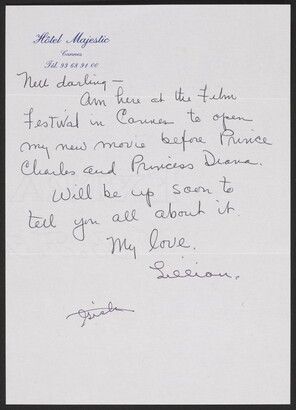 Hôtel Majestic
Cannes
Tél. 93 68 91 00
Nell darling —
Am here at the Film
Festival in Cannes to open
my new movie before Prince
Charles and Princess Diana.
Will be up soon to
tell you all about it.
My love,
Lillian.